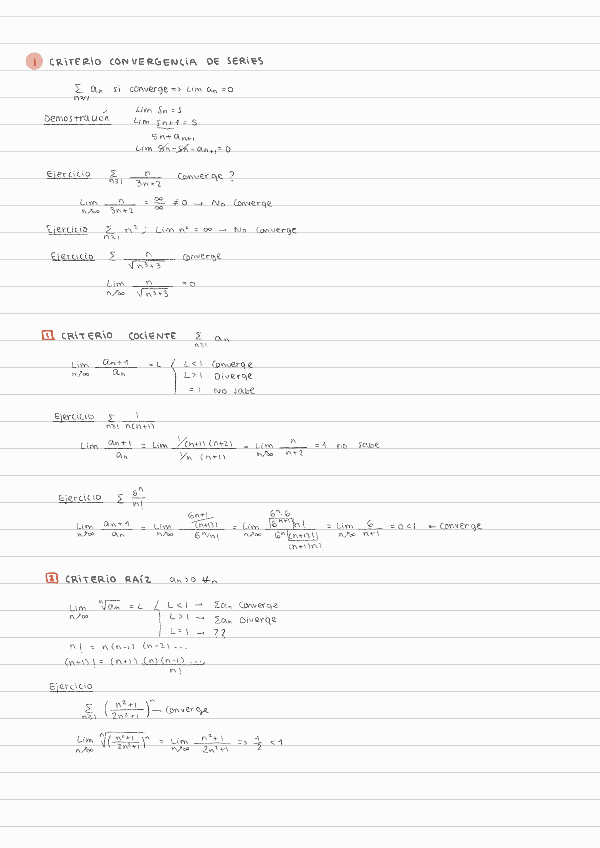 1 CRITERIO CONVERGENCIA DE SERIES
Σ n≥1 an si converge => Lim an = 0
Demostración Lim Sn = S
Lim Sn+1 = S
Sn + an+1
Lim Sn - Sn - an+1 = 0
Ejercicio Σ n≥1 n/(3n+2) Converge ?
Lim n↗∞ n/(3n+2) = ∞/∞ ≠ 0 → No Converge
Ejercicio Σ n≥1 n² ; Lim n² = ∞ → No Converge
Ejercicio Σ n/√(n³+3) converge
Lim n↗∞ n/√(n³+3) = 0
1 CRITERIO COCIENTE Σ n≥1 an
Lim n↗∞ an+1/an = L { L<1 Converge
L>1 Diverge
=1 No sabe
Ejercicio Σ n≥1 1/n(n+1)
Lim an+1/an = Lim 1/(n+1)(n+2) / 1/n (n+1) = Lim n↗∞ n/(n+2) = 1 no sabe
Ejercicio Σ 6ⁿ/n!
Lim n↗∞ an+1/an = Lim n↗∞ 6n+1/(n+1)! / 6ⁿ/n! = Lim n↗∞ 6ⁿ·6 6ⁿ⁺¹ n! / 6ⁿ (n+1)! (n+1)n! = Lim n↗∞ 6/(n+1) = 0 < 1 ← Converge
2 CRITERIO RAÍZ an>0 ∀n
Lim n↗∞ ⁿ√an = L { L<1 → Σan Converge
L>1 → Σan Diverge
L=1 → ??
n! = n(n-1) (n-2) ...
(n+1)! = (n+1) (n)(n-1) ...
n!
Ejercicio
Σ n≥1 ((n²+1)/(2n²+1))ⁿ → Converge
Lim n↗∞ ⁿ√((n²+1)/(2n²+1))ⁿ = Lim n↗∞ (n²+1)/(2n²+1) => 1/2 < 1